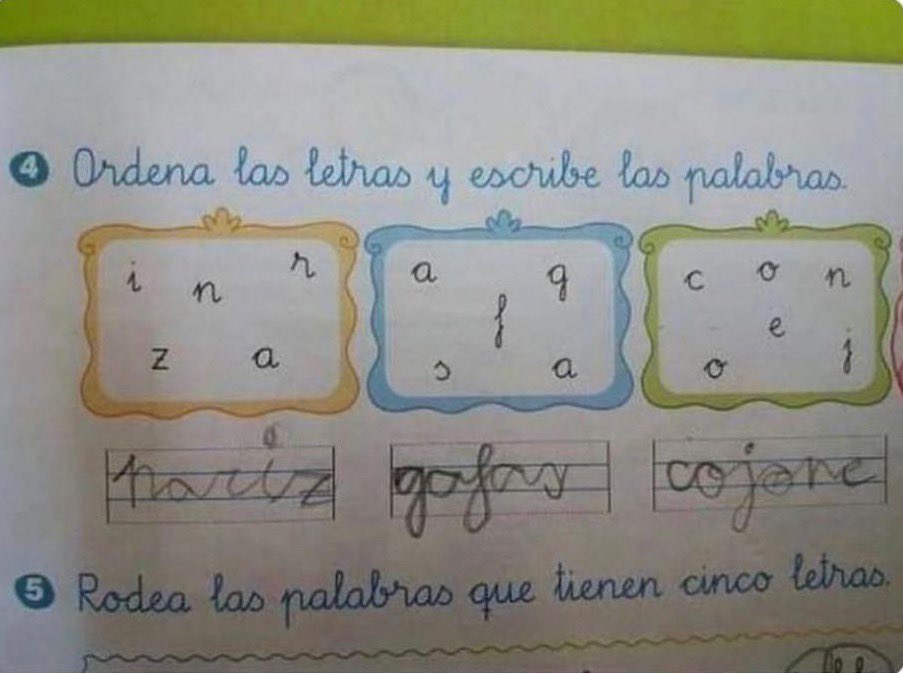 4 Ordena las letras y escribe las palabras.
i n r z a
a g f s a
c o n e o j
nariz gafas cojone
5 Rodea las palabras que tienen cinco letras.